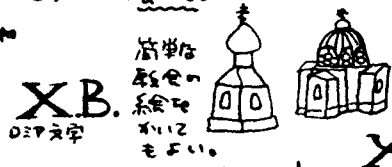 X.B.
ロシア文字
簡単な
教会の
絵を
かいて
もよい。